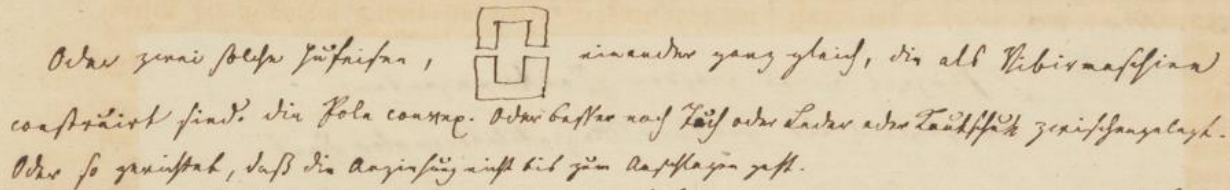 Oder zwei solche Hufeisen, einander ganz gleich, die als Vibrirmaschine
construirt sind. die Pole convex. Oder besser noch Tuch oder Leder oder Kautschuk zwischengelegt.
Oder so gerichtet, daß die Anziehung nicht bis zum Anschlagen geht.